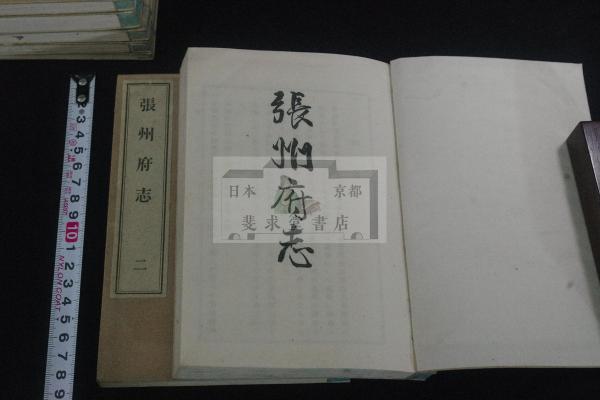 張州府志
二
張州府志
日本 京都
斐求堂書店
2 3 4 5 6 7 8 9 10 1 2 3 4 5 6 7 8 9
NYLON COAT